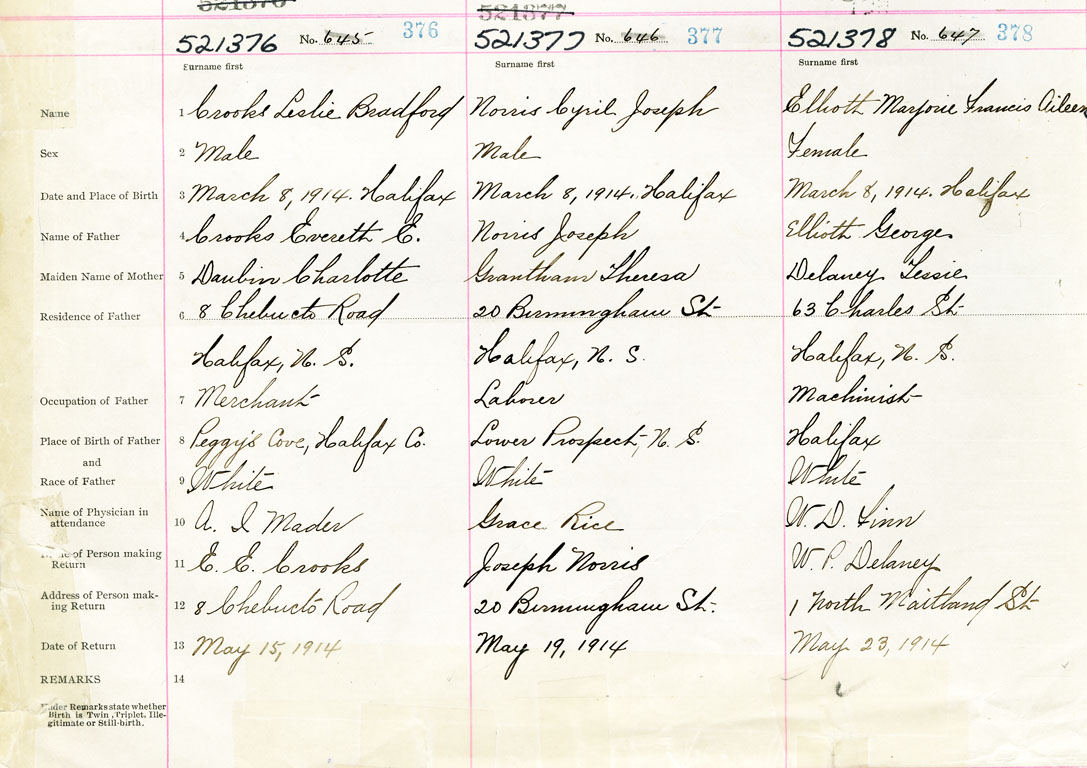 521377
521376 No. 645 376 521377 No. 646 377 521378 No. 647 378
Surname first Surname first Surname first
Name 1 Crooks Leslie Bradford Norris Cyril Joseph Elliott Marjorie Francis Aileen
Sex 2 Male Male Female
Date and Place of Birth 3 March 8, 1914. Halifax March 8, 1914. Halifax March 8, 1914. Halifax
Name of Father 4 Crooks Everett E. Norris Joseph Elliott George
Maiden Name of Mother 5 Daubin Charlotte Grantham Theresa Delaney Tessie
Residence of Father 6 8 Chebucto Road 20 Birmingham St. 63 Charles St.
Halifax, N. S. Halifax, N. S. Halifax, N. S.
Occupation of Father 7 Merchant Laborer Machinist
Place of Birth of Father 8 Peggy's Cove, Halifax Co. Lower Prospect, N. S. Halifax
and
Race of Father 9 White White White
Name of Physician in
attendance 10 A. I Mader Grace Rice W. D. Finn
of Person making
Return 11 E. E. Crooks Joseph Norris W. P. Delaney
Address of Person mak-
ing Return 12 8 Chebucto Road 20 Birmingham St. 1 North Maitland St
Date of Return 13 May 15, 1914 May 19, 1914 May 23, 1914
REMARKS 14
Under Remarks state whether
Birth is Twin, Triplet, Ille-
gitimate or Still-birth.